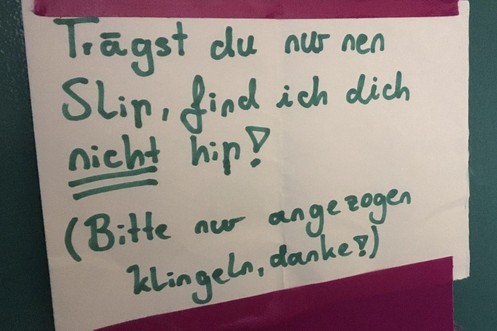 Trägst du nur nen
Slip, find ich dich
nicht hip!
(Bitte nur angezogen
klingeln, danke!)